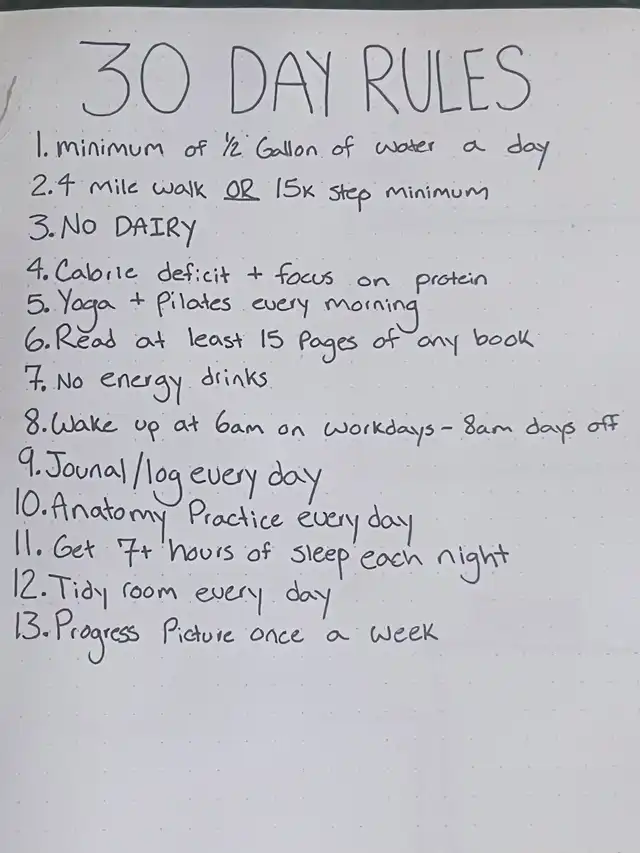 30 DAY RULES
1. minimum of 1/2 Gallon of water a day
2. 4 mile walk OR 15k step minimum
3. NO DAIRY
4. Calorie deficit + focus on protein
5. Yoga + Pilates every morning
6. Read at least 15 Pages of any book
7. No energy drinks
8. Wake up at 6am on workdays - 8am days off
9. Jounal/log every day
10. Anatomy Practice every day
11. Get 7+ hours of sleep each night
12. Tidy room every day
13. Progress Picture once a week